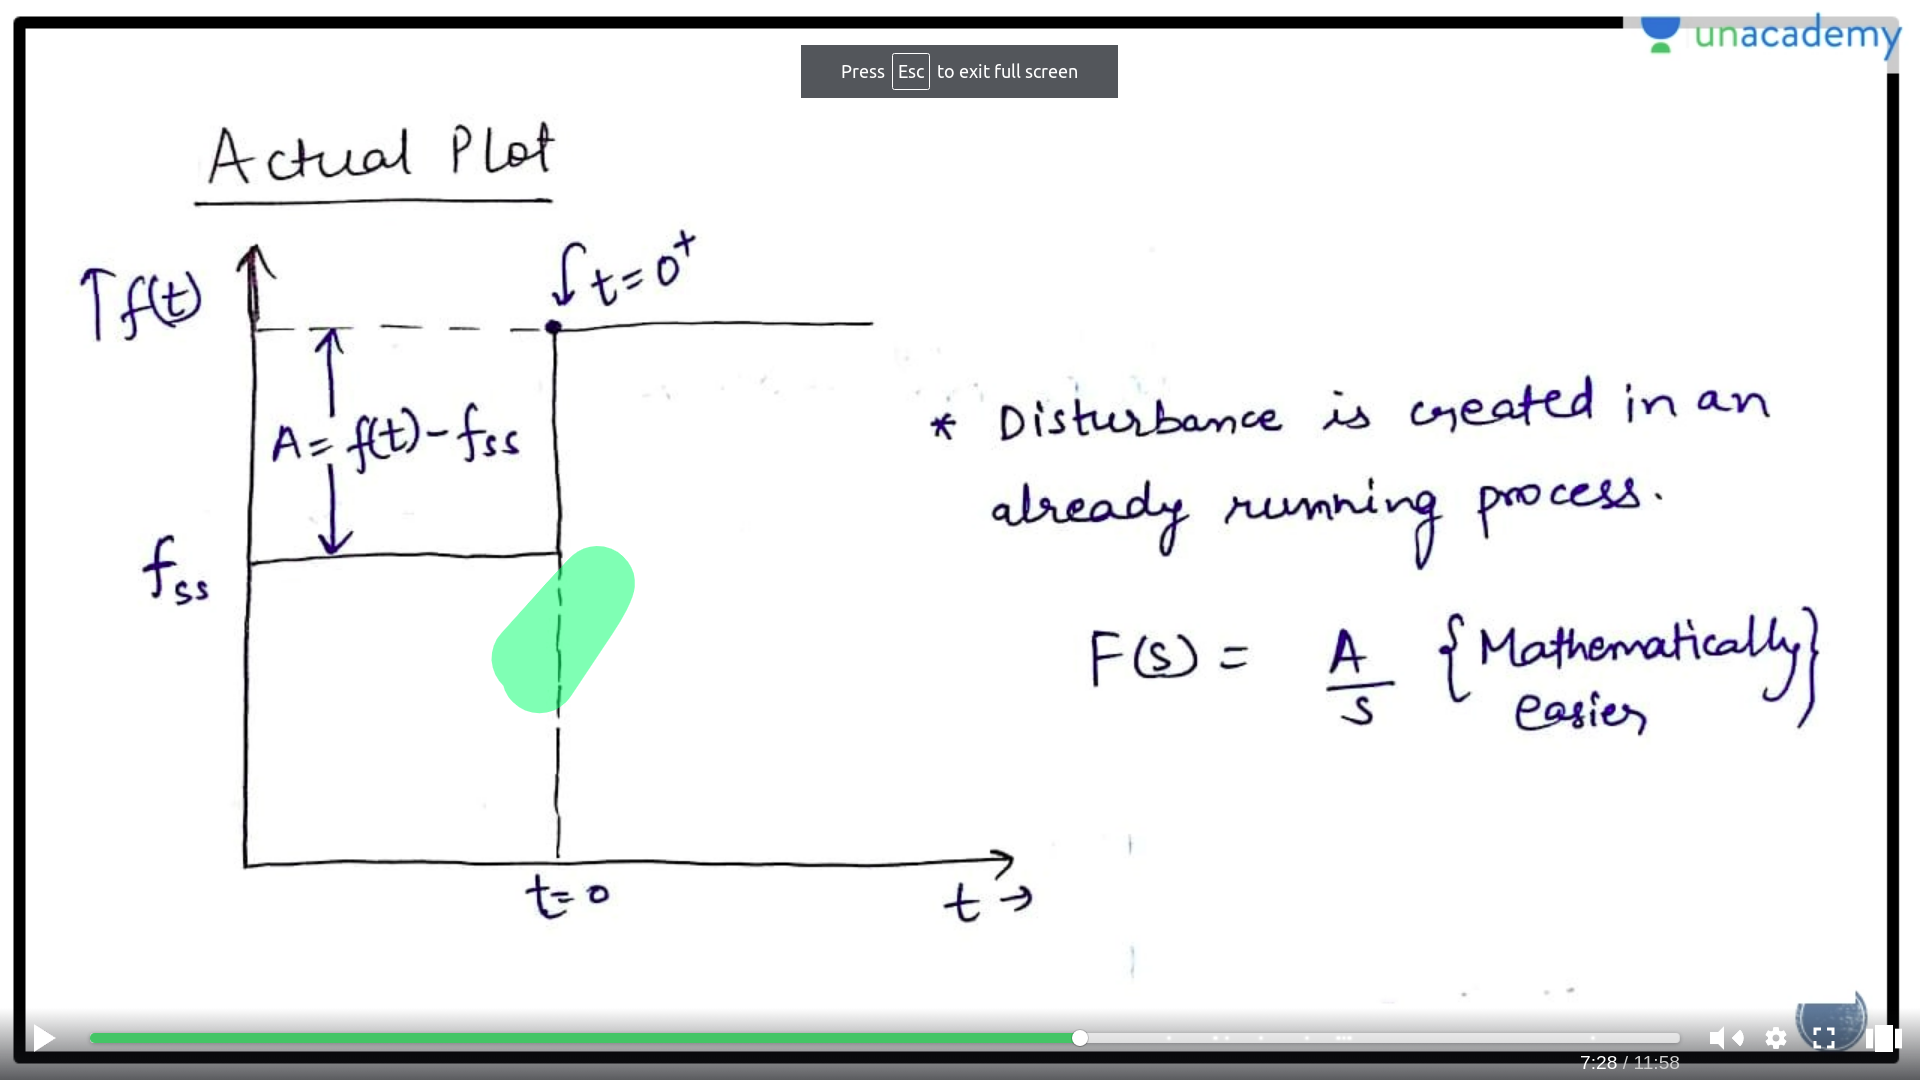 unacademy
Press Esc to exit full screen
Actual Plot
↑ f(t)
t = 0⁺
A = f(t) - fss
fss
t = 0
t →
* Disturbance is created in an
already running process.
F(s) = A/s {Mathematically
easier}
7:28 / 11:58